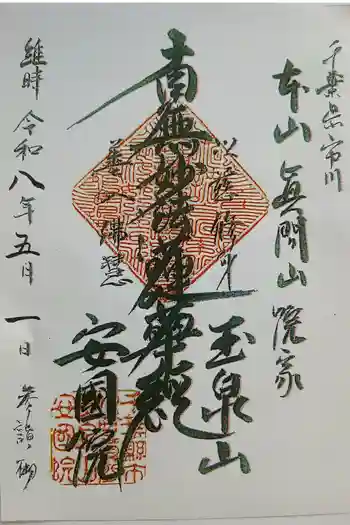 千葉県市川
本山真間山院家
玉泉山
以慈修身
南無妙法蓮華経
善入佛慧
安國院
維時 令和八年五月一日 参詣